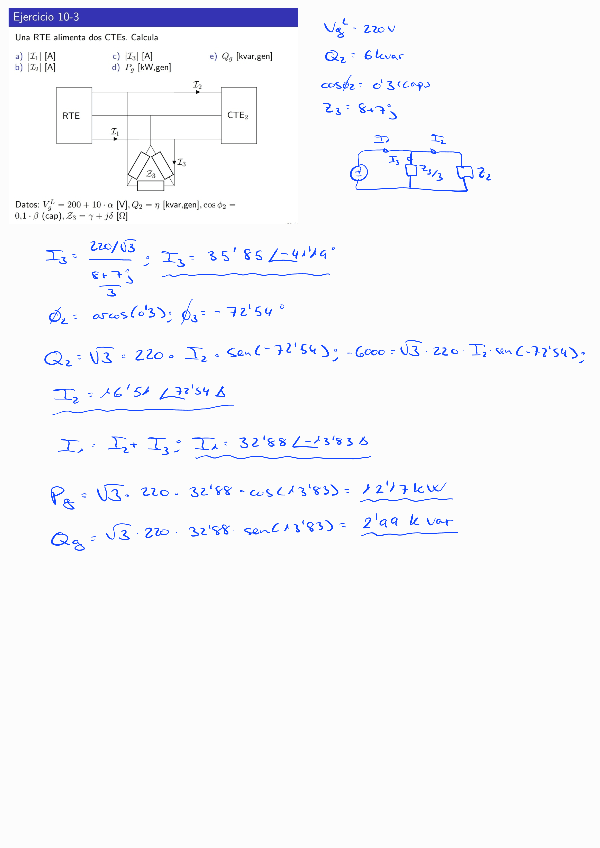 Ejercicio 10-3
Una RTE alimenta dos CTEs. Calcula
a) |I₁| [A]
c) |I₃| [A]
e) Q_g [kvar,gen]
b) |I₂| [A]
d) P_g [kW,gen]
I₂
RTE
CTE₂
I₁
I₃
Z₃
Datos: V_g^L = 200 + 10 · α [V], Q₂ = η [kvar,gen], cos ϕ₂ =
0,1 · β (cap), Z₃ = γ + jδ [Ω]
V_g^L = 220 V
Q₂ = 6 kvar
cosϕ₂ = 0'3 (cap)
Z₃ = 8+7j
I₁ I₂
I₃ Z₃/3 Z₂
I₃ = (220/√3)/((8+7j)/3) ; I₃ = 35'85 ∠-41'19°
ϕ₂ = arcos(0'3); ϕ₃ = -72'54°
Q₂ = √3 · 220 · I₂ · sen(-72'54); -6000 = √3 · 220 · I₂ · sen(-72'54);
I₂ = 16'51 ∠72'54 A
I₁ = I₂ + I₃; I₁ = 32'88 ∠-13'83 A
P_g = √3 · 220 · 32'88 · cos(13'83) = 12'17 kW
Q_g = √3 · 220 · 32'88 · sen(13'83) = 2'99 kvar